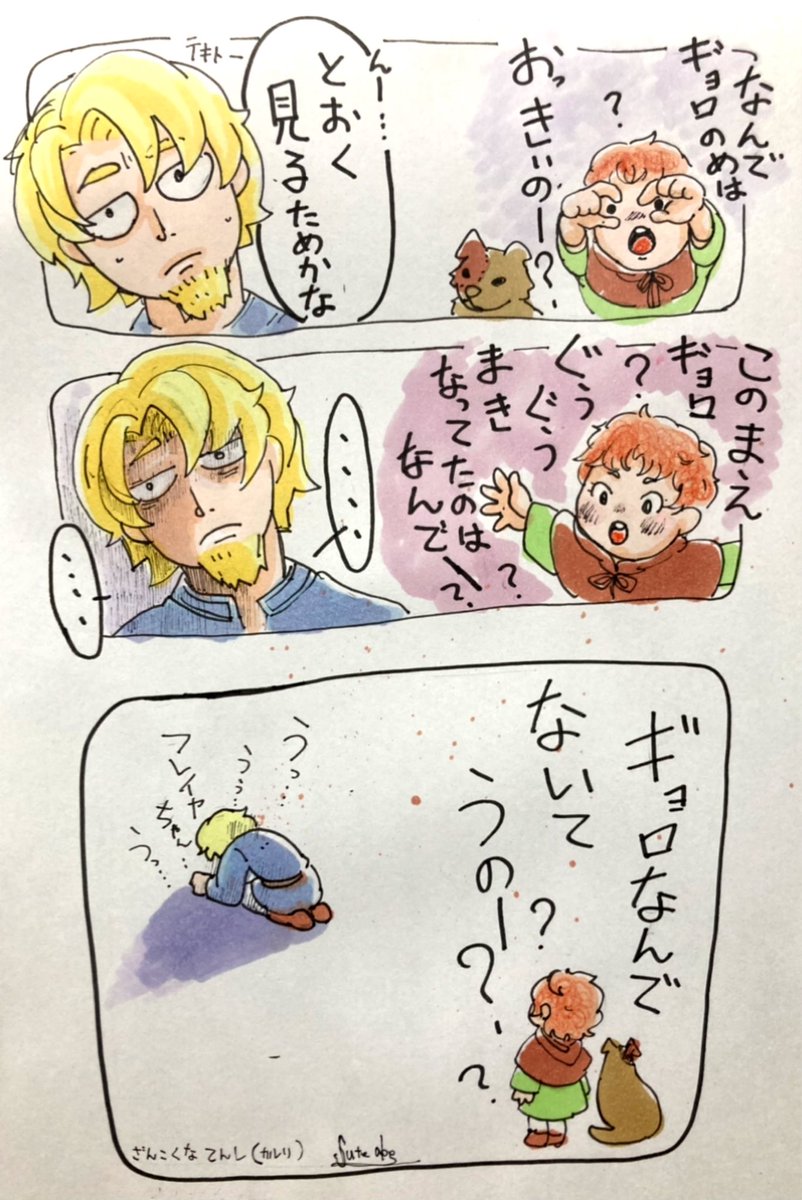 なんで
ギョロのめは
?
おっきいのー?
んー…
とおく
見るためかな
テキトー
このまえ
ギョロ
?
ぐぅ
ぐぅ
まき
なってたのは
なんでー?
?
....
....
ギョロなんで
ないて
?
うのー?
?
うっ…
うぅ…
フレイヤ
ちゃん…
うっ…
ざんこくな てんし(カルリ)